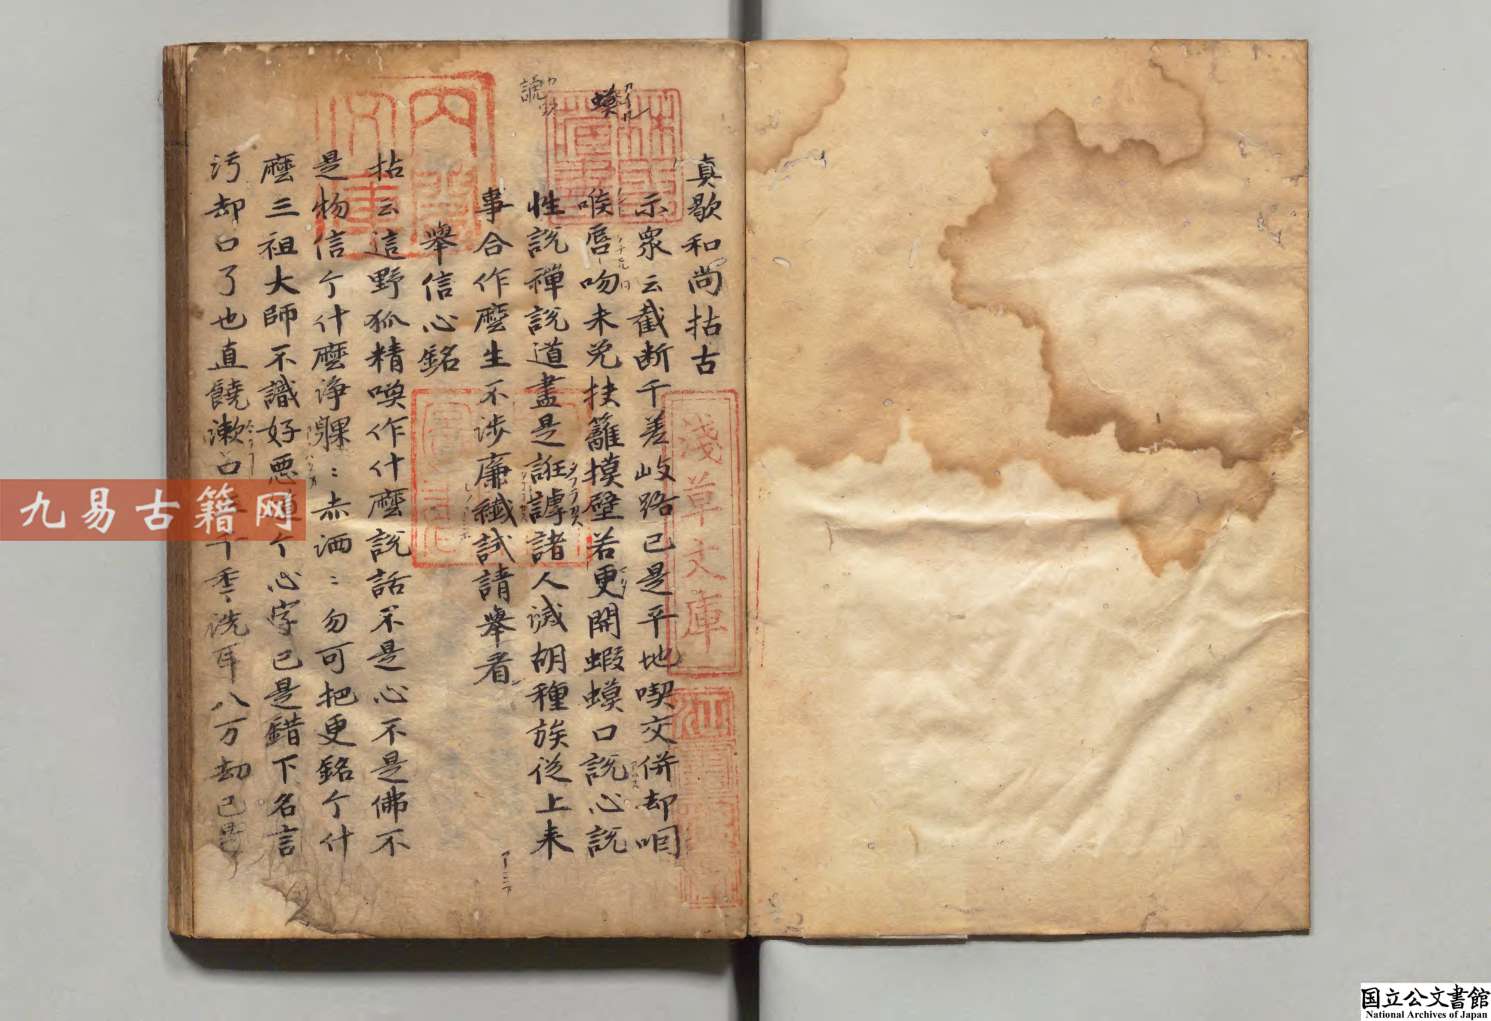 真歇和尚拈古
示衆云截断千差岐路已是平地喫交併却咽
喉唇吻未免扶籬摸壁若更開蝦蟆口說心說
性說禪說道盡是誑謼諸人滅胡種族從上来
事合作麼生不涉廉纖試請舉看
舉信心銘
拈云這野狐精喚作什麼說話不是心不是佛不
是物信个什麼淨躶〻赤洒〻勿可把更銘个什
麼三祖大師不識好惡 个心字已是錯下名言
汚却口了也直饒漱口 千季洗耳八万劫已是
蟆
謼
淺草文庫
九易古籍网
国立公文書館
National Archives of Japan